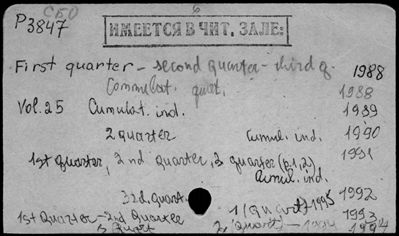 СБО 6
P3847
ИМЕЕТСЯ В ЧИТ. ЗАЛЕ:
First quarter - second quarter - third q. 1988
Commulat. quat. 1988
Vol. 25 Cumulat. ind. 1989
2 quarter Cumul. ind. 1990
1st quarter, 2nd quarter, 3 quarter (p.1,2) 1991
Cumul. ind.
3rd. quart. 1992
1st Quarter - 2rd Quarter 1995 1993
3 Quart 1994 1994